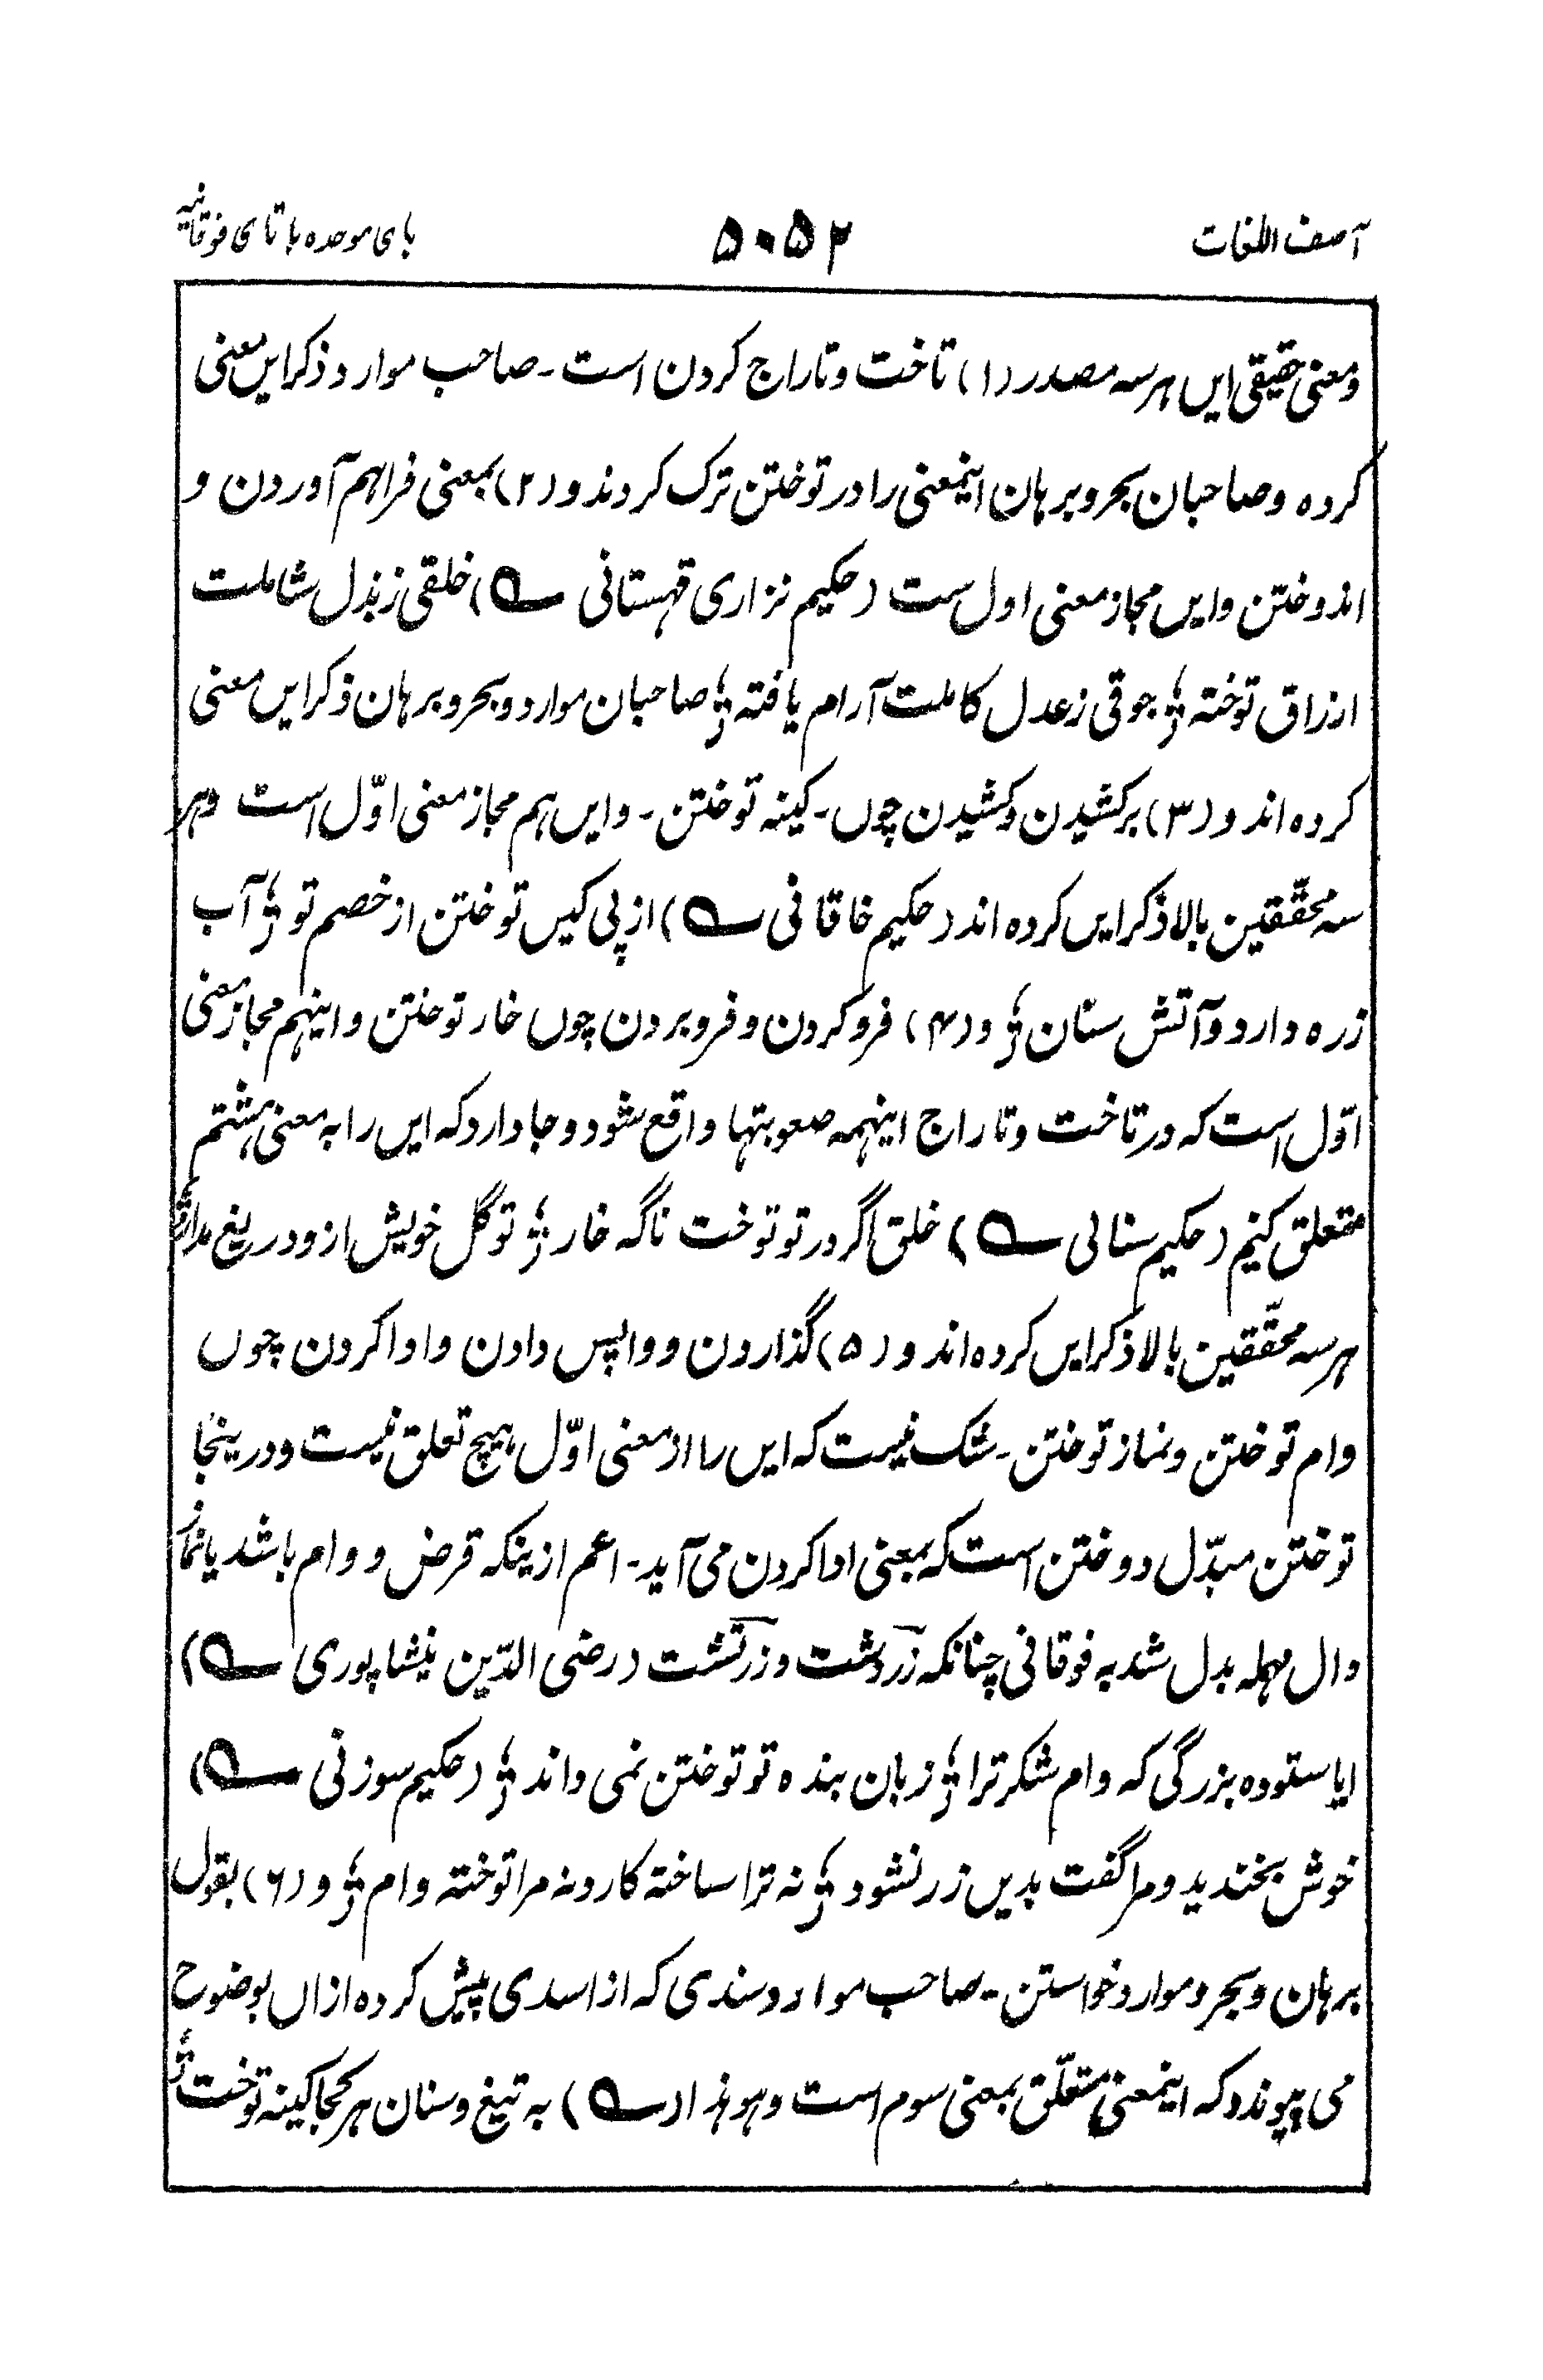 آصف اللغات ۵۰۵۲ بای موحده با تای فوقانیه
ومعنی حقیقی ایں ہر سہ مصدر (۱) تاخت و تاراج کردن است ۔ صاحب موارد ذکر ایں معنی
کرده وصاحبان بحر و برہان اینمعنی را در توختن ترک کردند و (۲) بمعنی فراہم آوردن و
اندوختن وایں مجاز معنی اول ست (حکیم نزاری قہستانی ؎) خلقی ز بذل شاملت
ارزاق توختہ ؛ جوقی ز عدل کاملت آرام یافتہ ؛ صاحبان موارد و بحر و برہان ذکر ایں معنی
کرده اند و (۳) برکشیدن و کشیدن چوں ۔ کینہ توختن ۔ وایں ہم مجاز معنی اوّل است وہر
سہ محقّقین بالا ذکر ایں کرده اند (حکیم خاقانی ؎) از پی کیں توختن از خصم تو ؛ آب
زره دارد و آتش سنان ؛ و (۴) فرو کردن و فرو بردن چوں خار توختن و اینہم مجاز معنی
اوّل است کہ در تاخت و تاراج اینہمہ صعوبتہا واقع شود و جا دارد کہ ایں را بہ معنی ہشتم
متعلق کنیم (حکیم سنائی ؎) خلق اگر در تو توخت ناگہ خار ؛ تو گل خویش از و دریغ مدار ؛
ہر سہ محقّقین بالا ذکر ایں کرده اند و (۵) گذاردن و واپس دادن و ادا کردن چوں
وام توختن و نماز توختن ۔ شک نیست کہ ایں را از معنی اوّل ہیچ تعلق نیست و درینجا
توختن مبدّل دوختن است کہ بمعنی ادا کردن می آید ۔ اعم ازینکہ قرض و وام باشد یا نماز
دال مہملہ بدل شد بہ فوقانی چنانکہ زردشت و زرتشت (رضی الدّین نیشاپوری ؎)
ایا ستوده بزرگی کہ وام شکر ترا ؛ زبان بنده تو توختن نمی داند ؛ (حکیم سوزنی ؎)
خوش بخندید و مرا گفت بدیں زر نشود ؛ نہ ترا ساختہ کار و نہ مرا توختہ وام ؛ و (۶) بقول
برہان و بحر و موارد خواستن ۔ صاحب موارد سندی کہ از اسدی پیش کرده ازاں بوضوح
می پیوندد کہ اینمعنی متعلّق بمعنی سوم است و ہو ہذا (؎) بہ تیغ و سنان ہر کجا کینہ توخت ؛